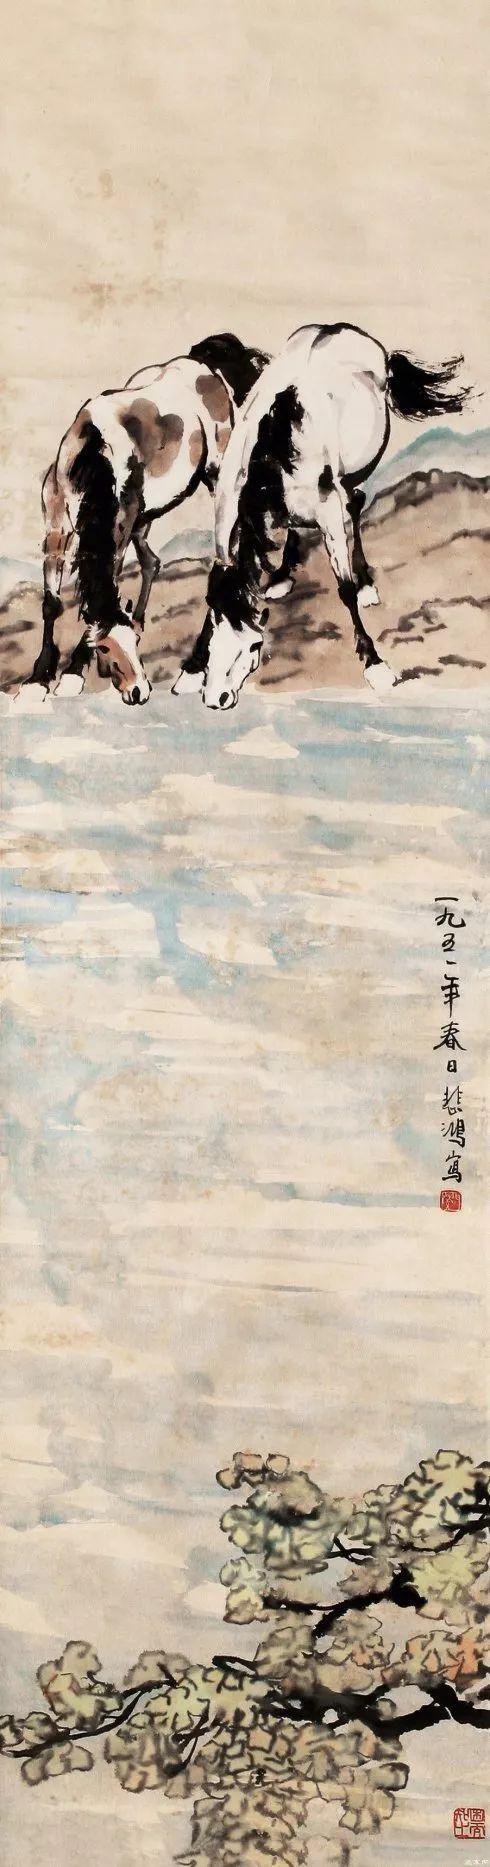 一九五一年春日悲鸿写